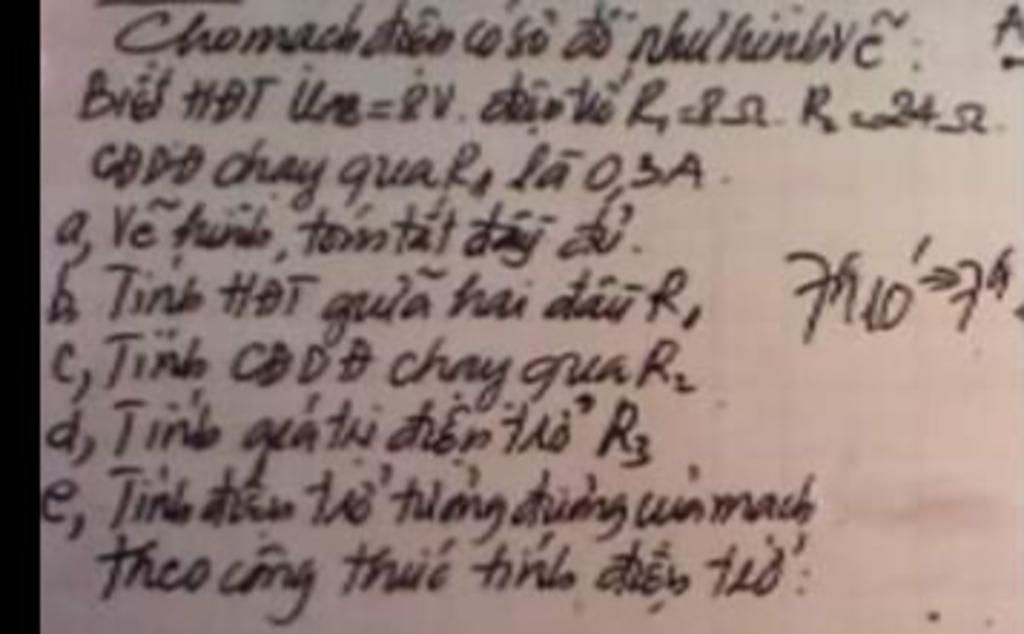 Cho mạch điện có sơ đồ như hình vẽ: A
Biết HĐT UAB = 8V. điện trở R1 = 8Ω R2 = 24Ω
CĐDĐ chạy qua R1 là 0,3A.
a, Vẽ hình, tóm tắt đầy đủ.
b, Tính HĐT giữa hai đầu R1
c, Tính CĐDĐ chạy qua R2
d, Tính giá trị điện trở R3
e, Tính điện trở tương đương của mạch
theo công thức tính điện trở:
7h10' => 7h